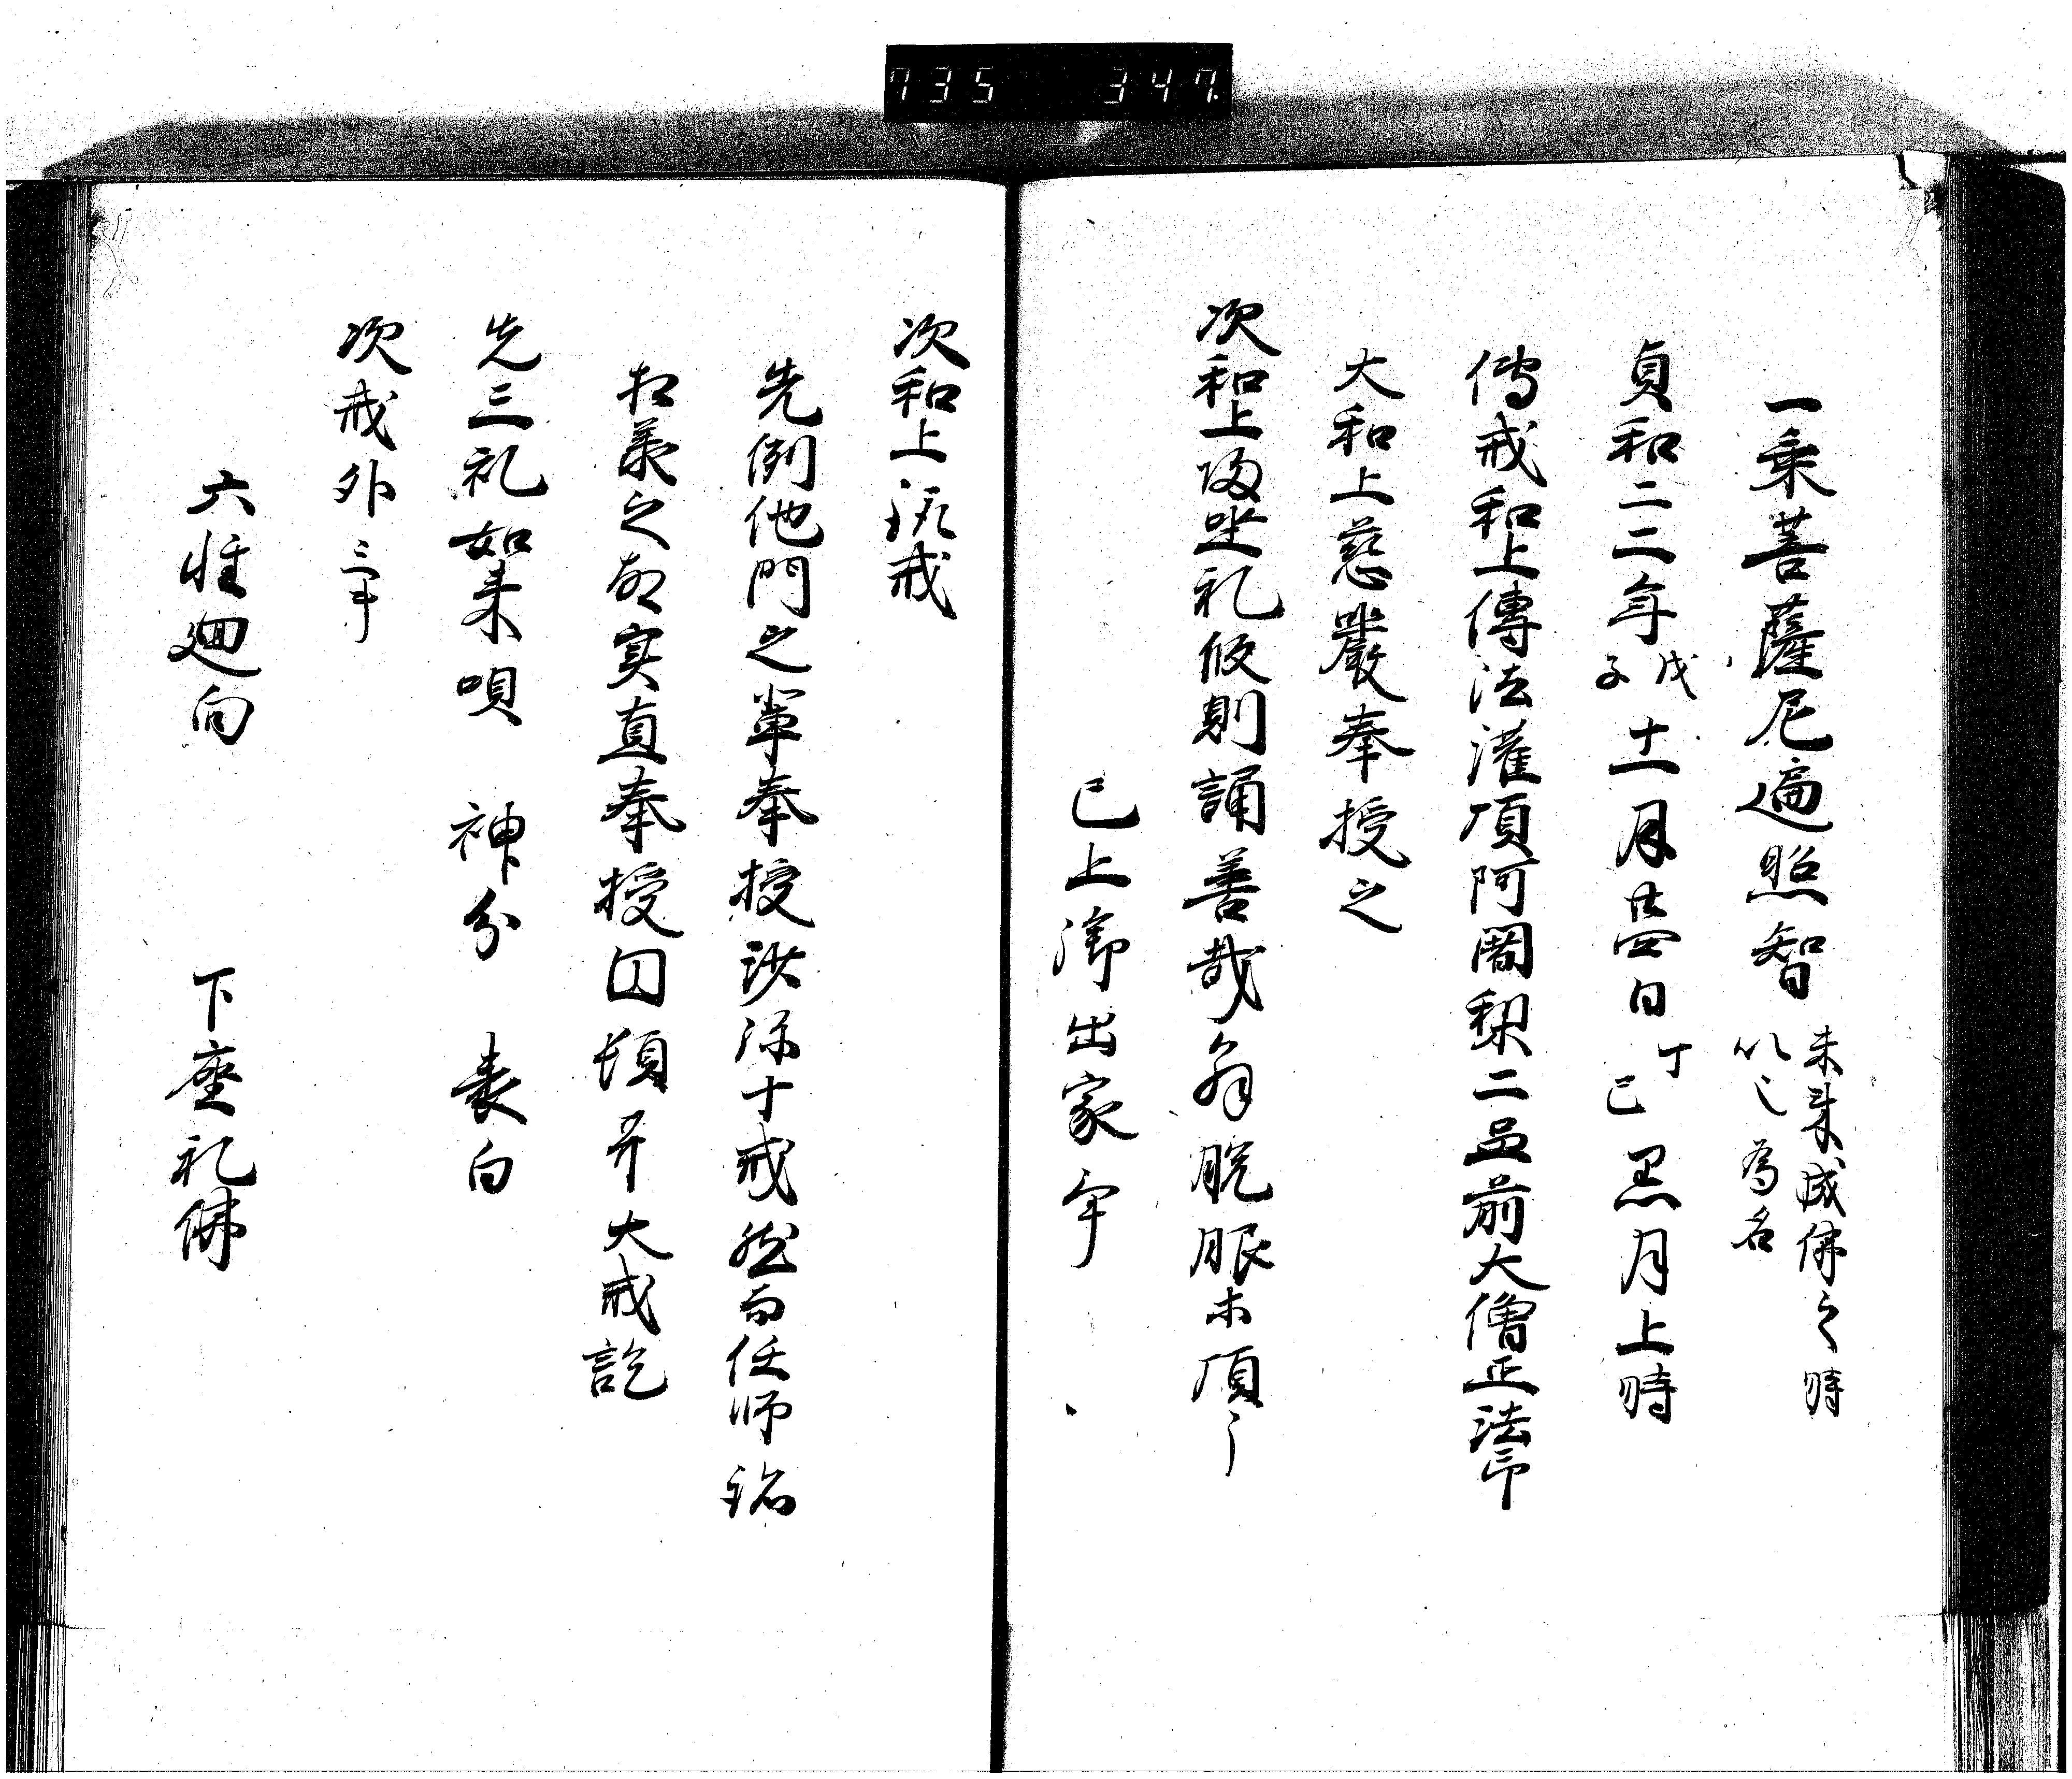 735 347
一乗菩薩尼遍照智 未来成佛之時
以之為名
貞和二二年戊子十一月廿四日丁巳黒月上時
傳戒和上傳法灌頂阿闍梨二品前大僧正法印
大和上慈嚴奉授之
次和上復坐礼仏則誦善哉解脱服木頂〻
已上御出家畢
次和上説戒
先例他門之輩奉授沙弥十戒然而任師説
相義之故実直奉授円頓并大戒訖
先三礼如来唄 神分 表白
次戒外三
六性廻向 下座礼佛